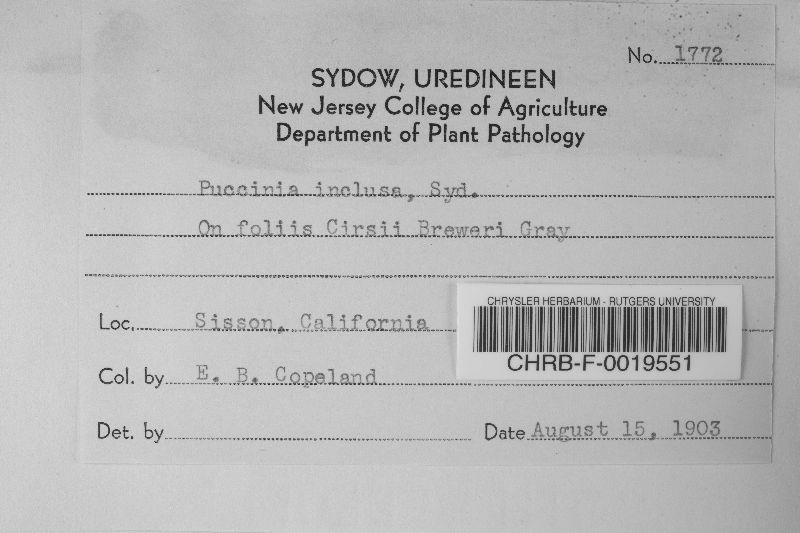 No. 1772
SYDOW, UREDINEEN
New Jersey College of Agriculture
Department of Plant Pathology
Puccinia inclusa, Syd.
On foliis Cirsii Breweri Gray
Loc. Sisson, California
CHRYSLER HERBARIUM - RUTGERS UNIVERSITY
CHRB-F-0019551
Col. by E. B. Copeland
Det. by
Date August 15, 1903